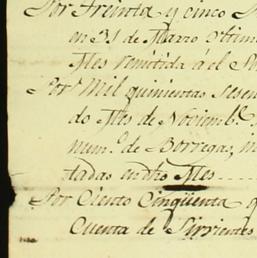 Por Treinta y cinco
en 31 de Marzo
Mes remitida á el
Por Mil quinientas sesen
do Mes de Noviembe.
num.º de Borregas, in
tadas en dho Mes
Por Ciento Cinqüenta
Cuenta de Sirvientes